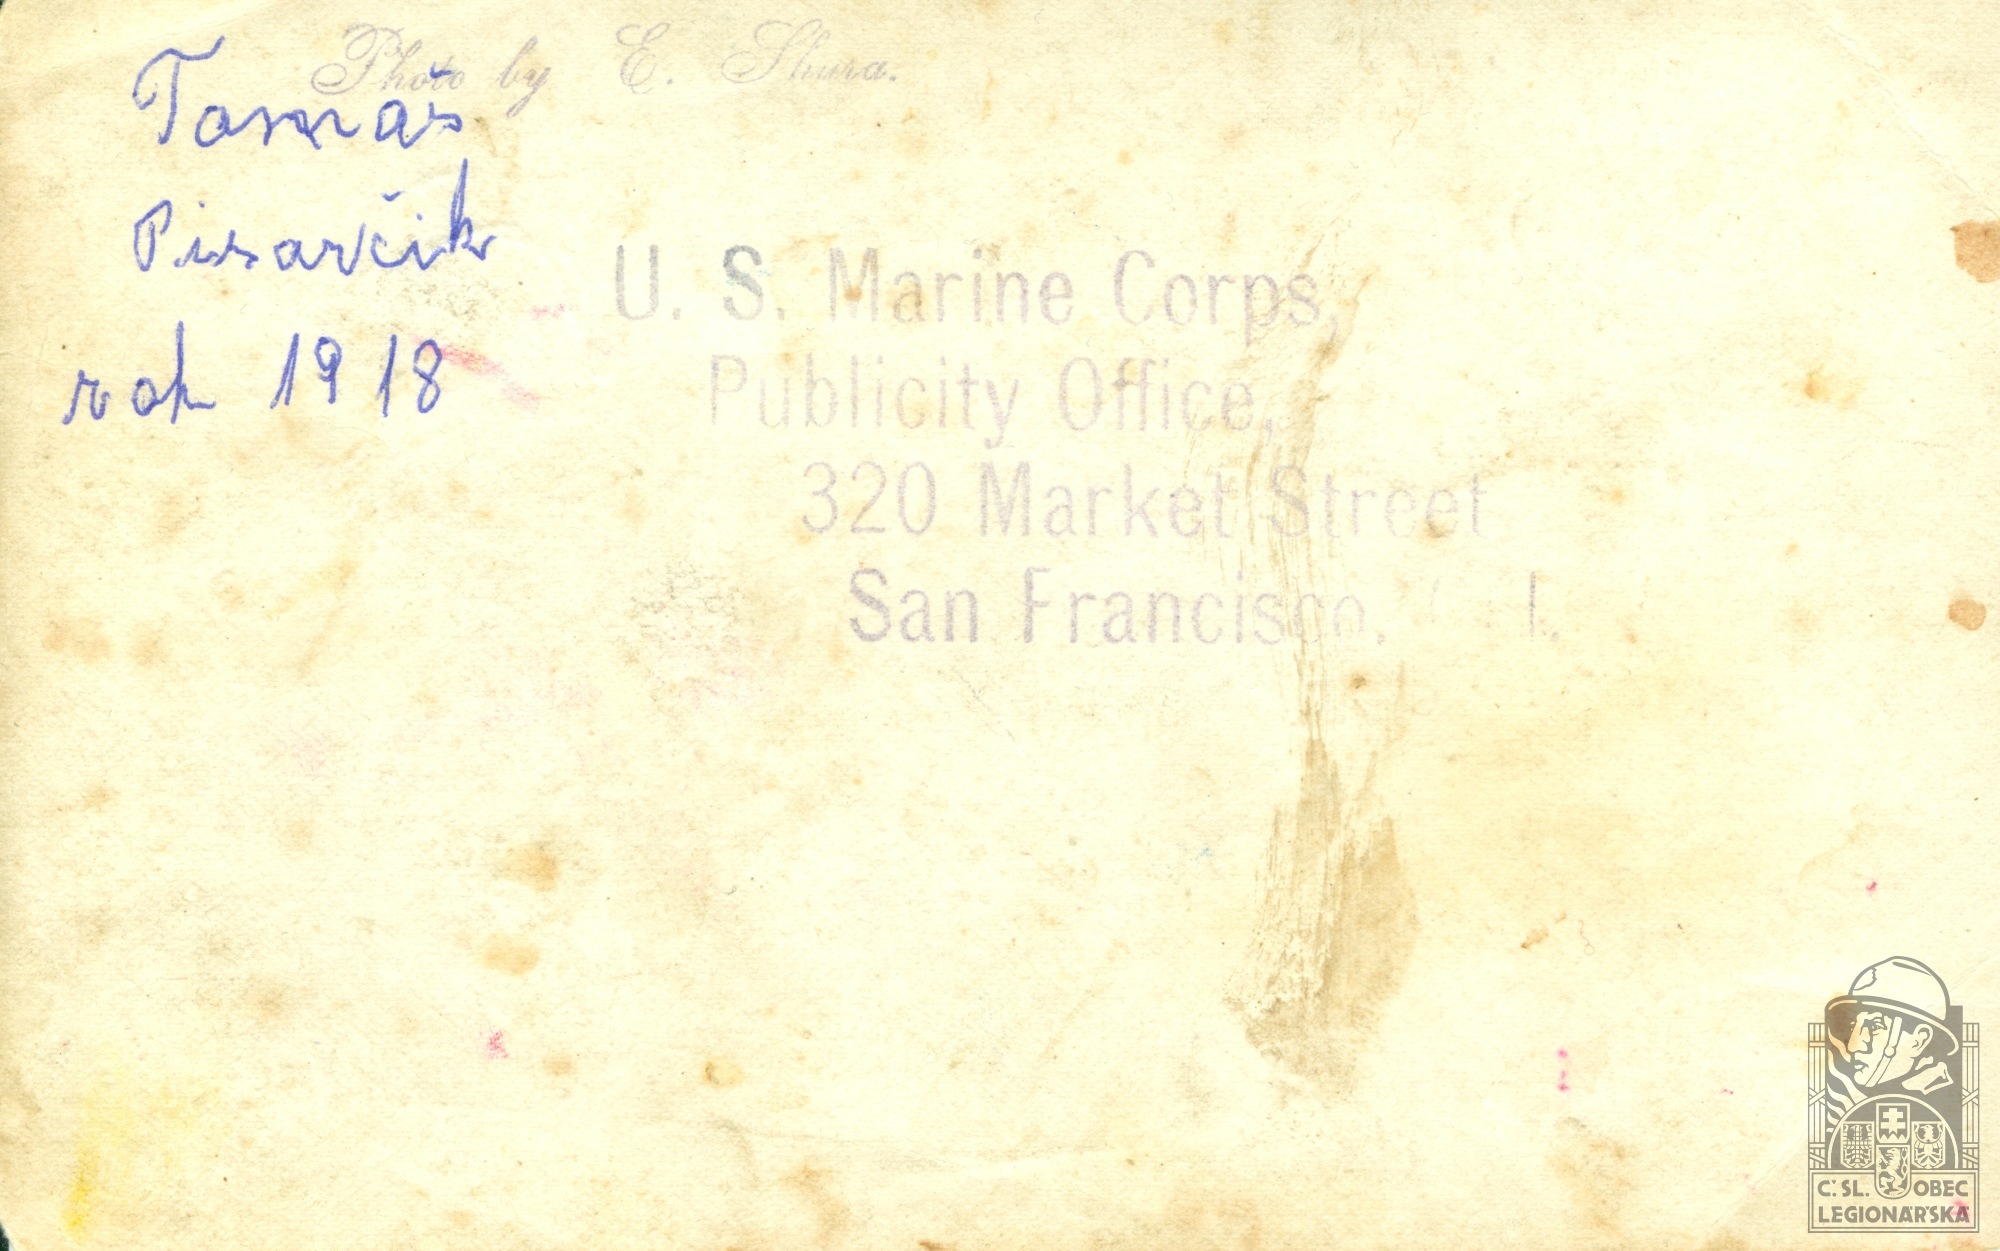 Photo by E. Shura.
Tomaš
Pisarčik
rok 1918
U. S. Marine Corps,
Publicity Office,
320 Market Street
San Francisco,
Č. SL. OBEC
LEGIONÁŘSKÁ